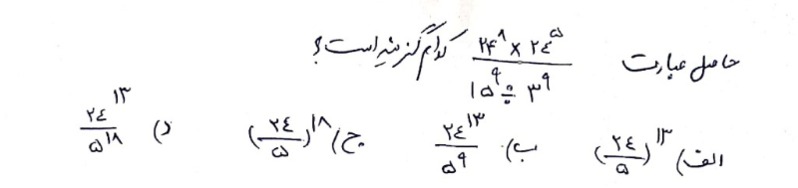 حاصل عبارت (۲۴^۸ × ۲۴^۵) / (۱۵^۹ ÷ ۳^۹) کدام گزینه است؟
الف) (۲۴/۵)^۱۳ ب) ۲۴^۱۳/۵^۹ ج) (۲۴/۵)^۱۸ د) ۲۴^۱۳/۵^۱۸